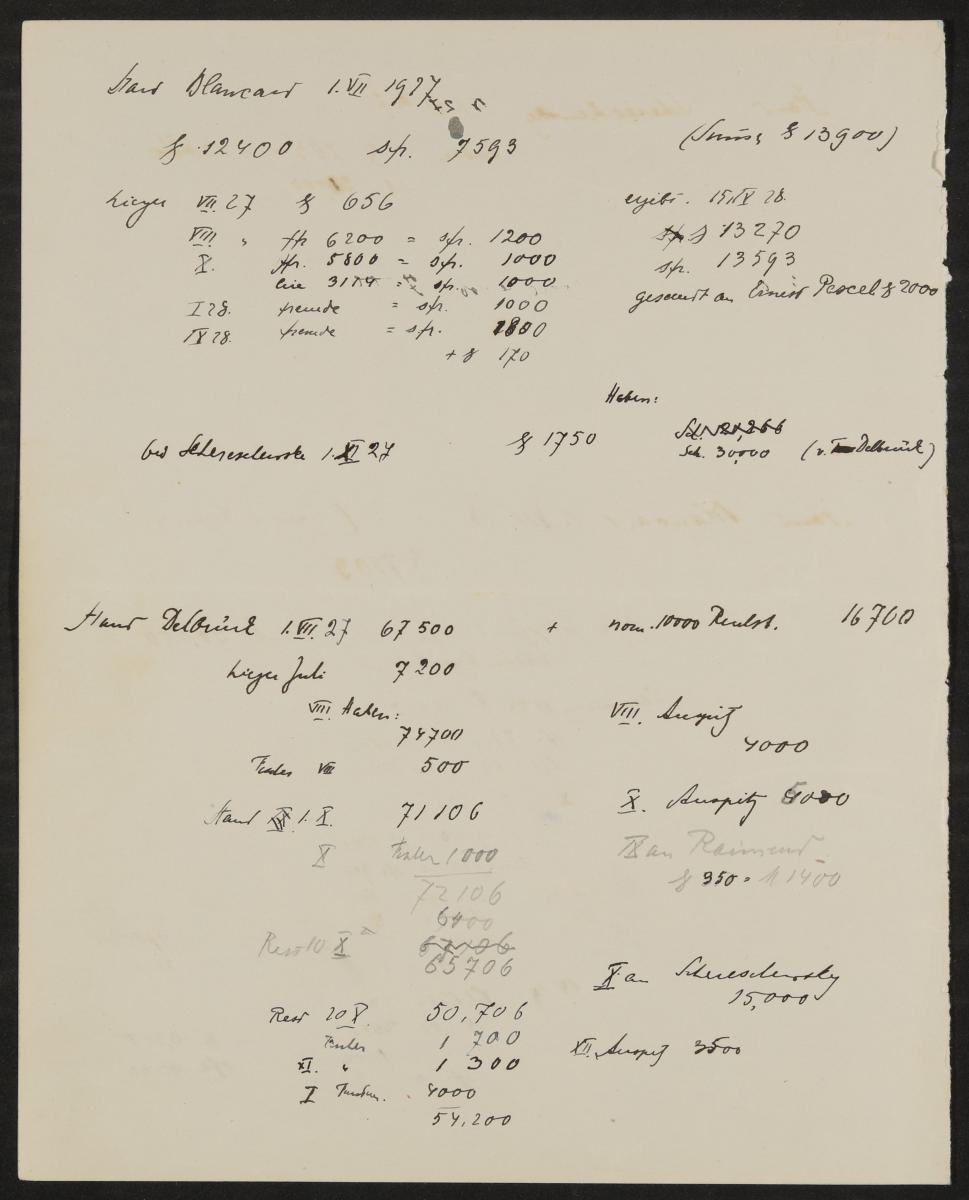 Stand Blancard 1.VII 1927
$ 12400 sfr. 7593 (Summe $ 13900)
Lieger VII. 27 $ 656
VIII. " ffr 6200 = sfr. 1200
X. ffr. 5800 = sfr. 1000
Lire 3174 = sfr. 1000
I 28. fremde = sfr. 1000
IX 28. fremde = sfr. 1800
+ $ 170
ergibt. 15.IX 28.
$ 13270
sfr. 13593
gesandt an Ernest $ 2000
Haben:
bei 1.XI 27 $ 1750
Sch. 21,266
Sch. 30,000 (v. Delbrück)
Stand Delbrück 1.VII.27 67500 + nom. 10000 16700
Lieger Juli 7200
VIII. Haben:
74700
VIII. Auspitz
4000
VIII 500
Stand 1.X. 71106
X. Auspitz 5000
X 1000
72106
IX an Raimund
$ 350 = M 1400
6400
Rest 10 X
67106
65706
X. an Schereschewsky
15,000
Rest 20 X. 50,706
1 700
XI. " 1 300
XII. Auspitz 3500
I 4000
54,200